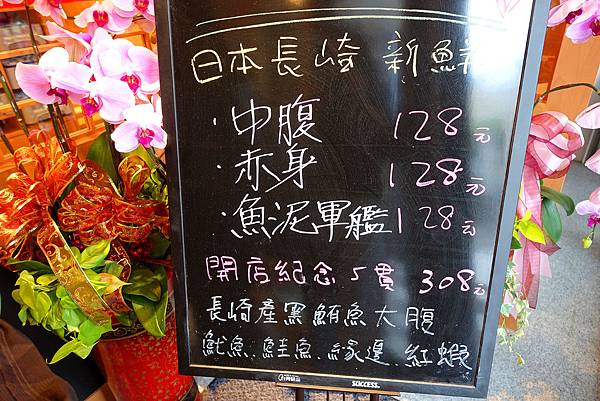 日本長崎 新鮮
·中腹 128元
·赤身 128元
·魚泥軍艦 128元
開店紀念5貫 308元
長崎產黑鮪魚大腹
魷魚.鮭魚.緣邊.紅蝦
SUCCESS.